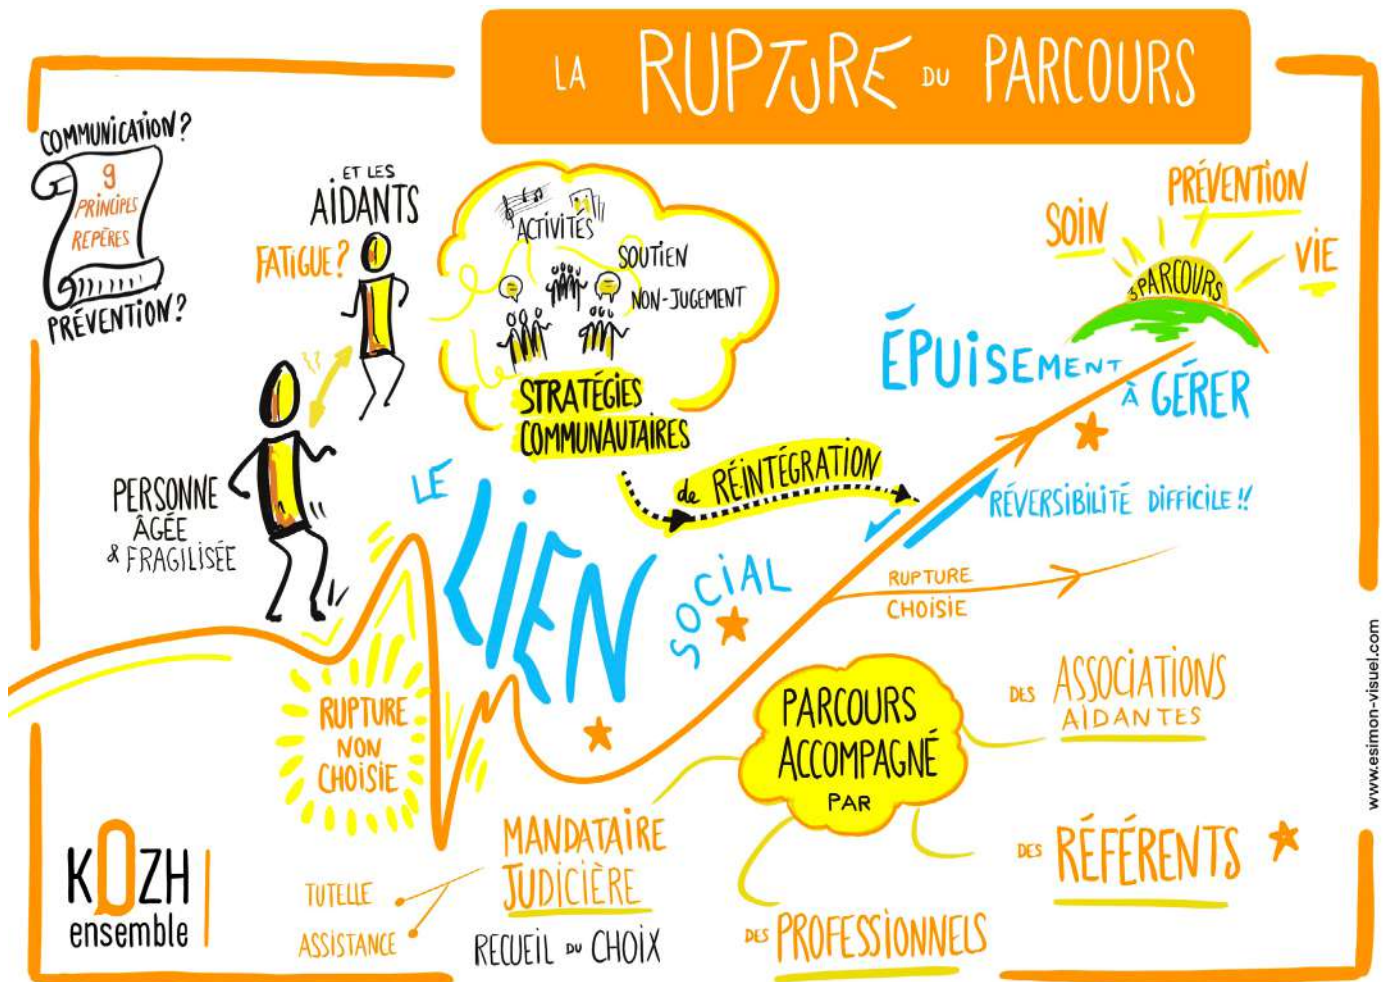 LA RUPTURE DU PARCOURS
COMMUNICATION?
9
PRINCIPES
REPÈRES
PRÉVENTION?
ET LES
AIDANTS
FATIGUE?
PERSONNE
ÂGÉE
& FRAGILISÉE
ACTIVITÉS
SOUTIEN
NON-JUGEMENT
STRATÉGIES
COMMUNAUTAIRES
de RÉINTÉGRATION
SOIN
PRÉVENTION
VIE
3 PARCOURS
ÉPUISEMENT
À GÉRER
RÉVERSIBILITÉ DIFFICILE!!
LE
LIEN
SOCIAL
RUPTURE
CHOISIE
RUPTURE
NON
CHOISIE
PARCOURS
ACCOMPAGNÉ
PAR
DES ASSOCIATIONS
AIDANTES
DES RÉFÉRENTS
DES PROFESSIONNELS
MANDATAIRE
JUDICIÈRE
RECUEIL DU CHOIX
TUTELLE
ASSISTANCE
KOZH
ensemble
www.esimon-visuel.com